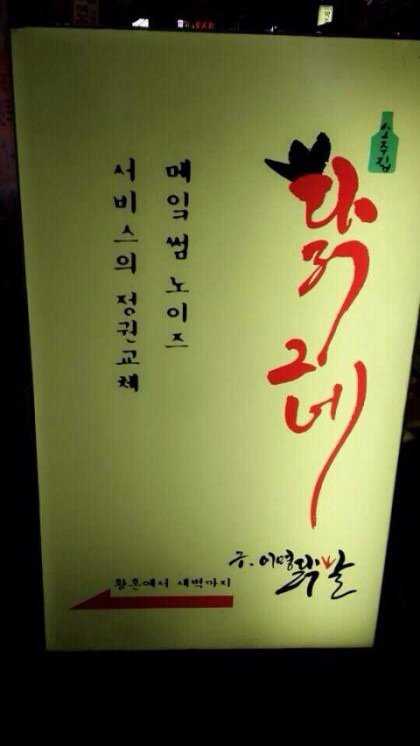 소주집
닭그네
메잌썸노이즈
서비스의 정권교체
구.이명박닭발
황혼에서 새벽까지